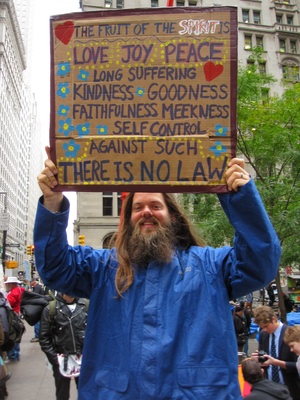 THE FRUIT OF THE SPIRIT IS
LOVE JOY PEACE
LONG SUFFERING
KINDNESS GOODNESS
FAITHFULNESS MEEKNESS
SELF CONTROL
AGAINST SUCH
THERE IS NO LAW